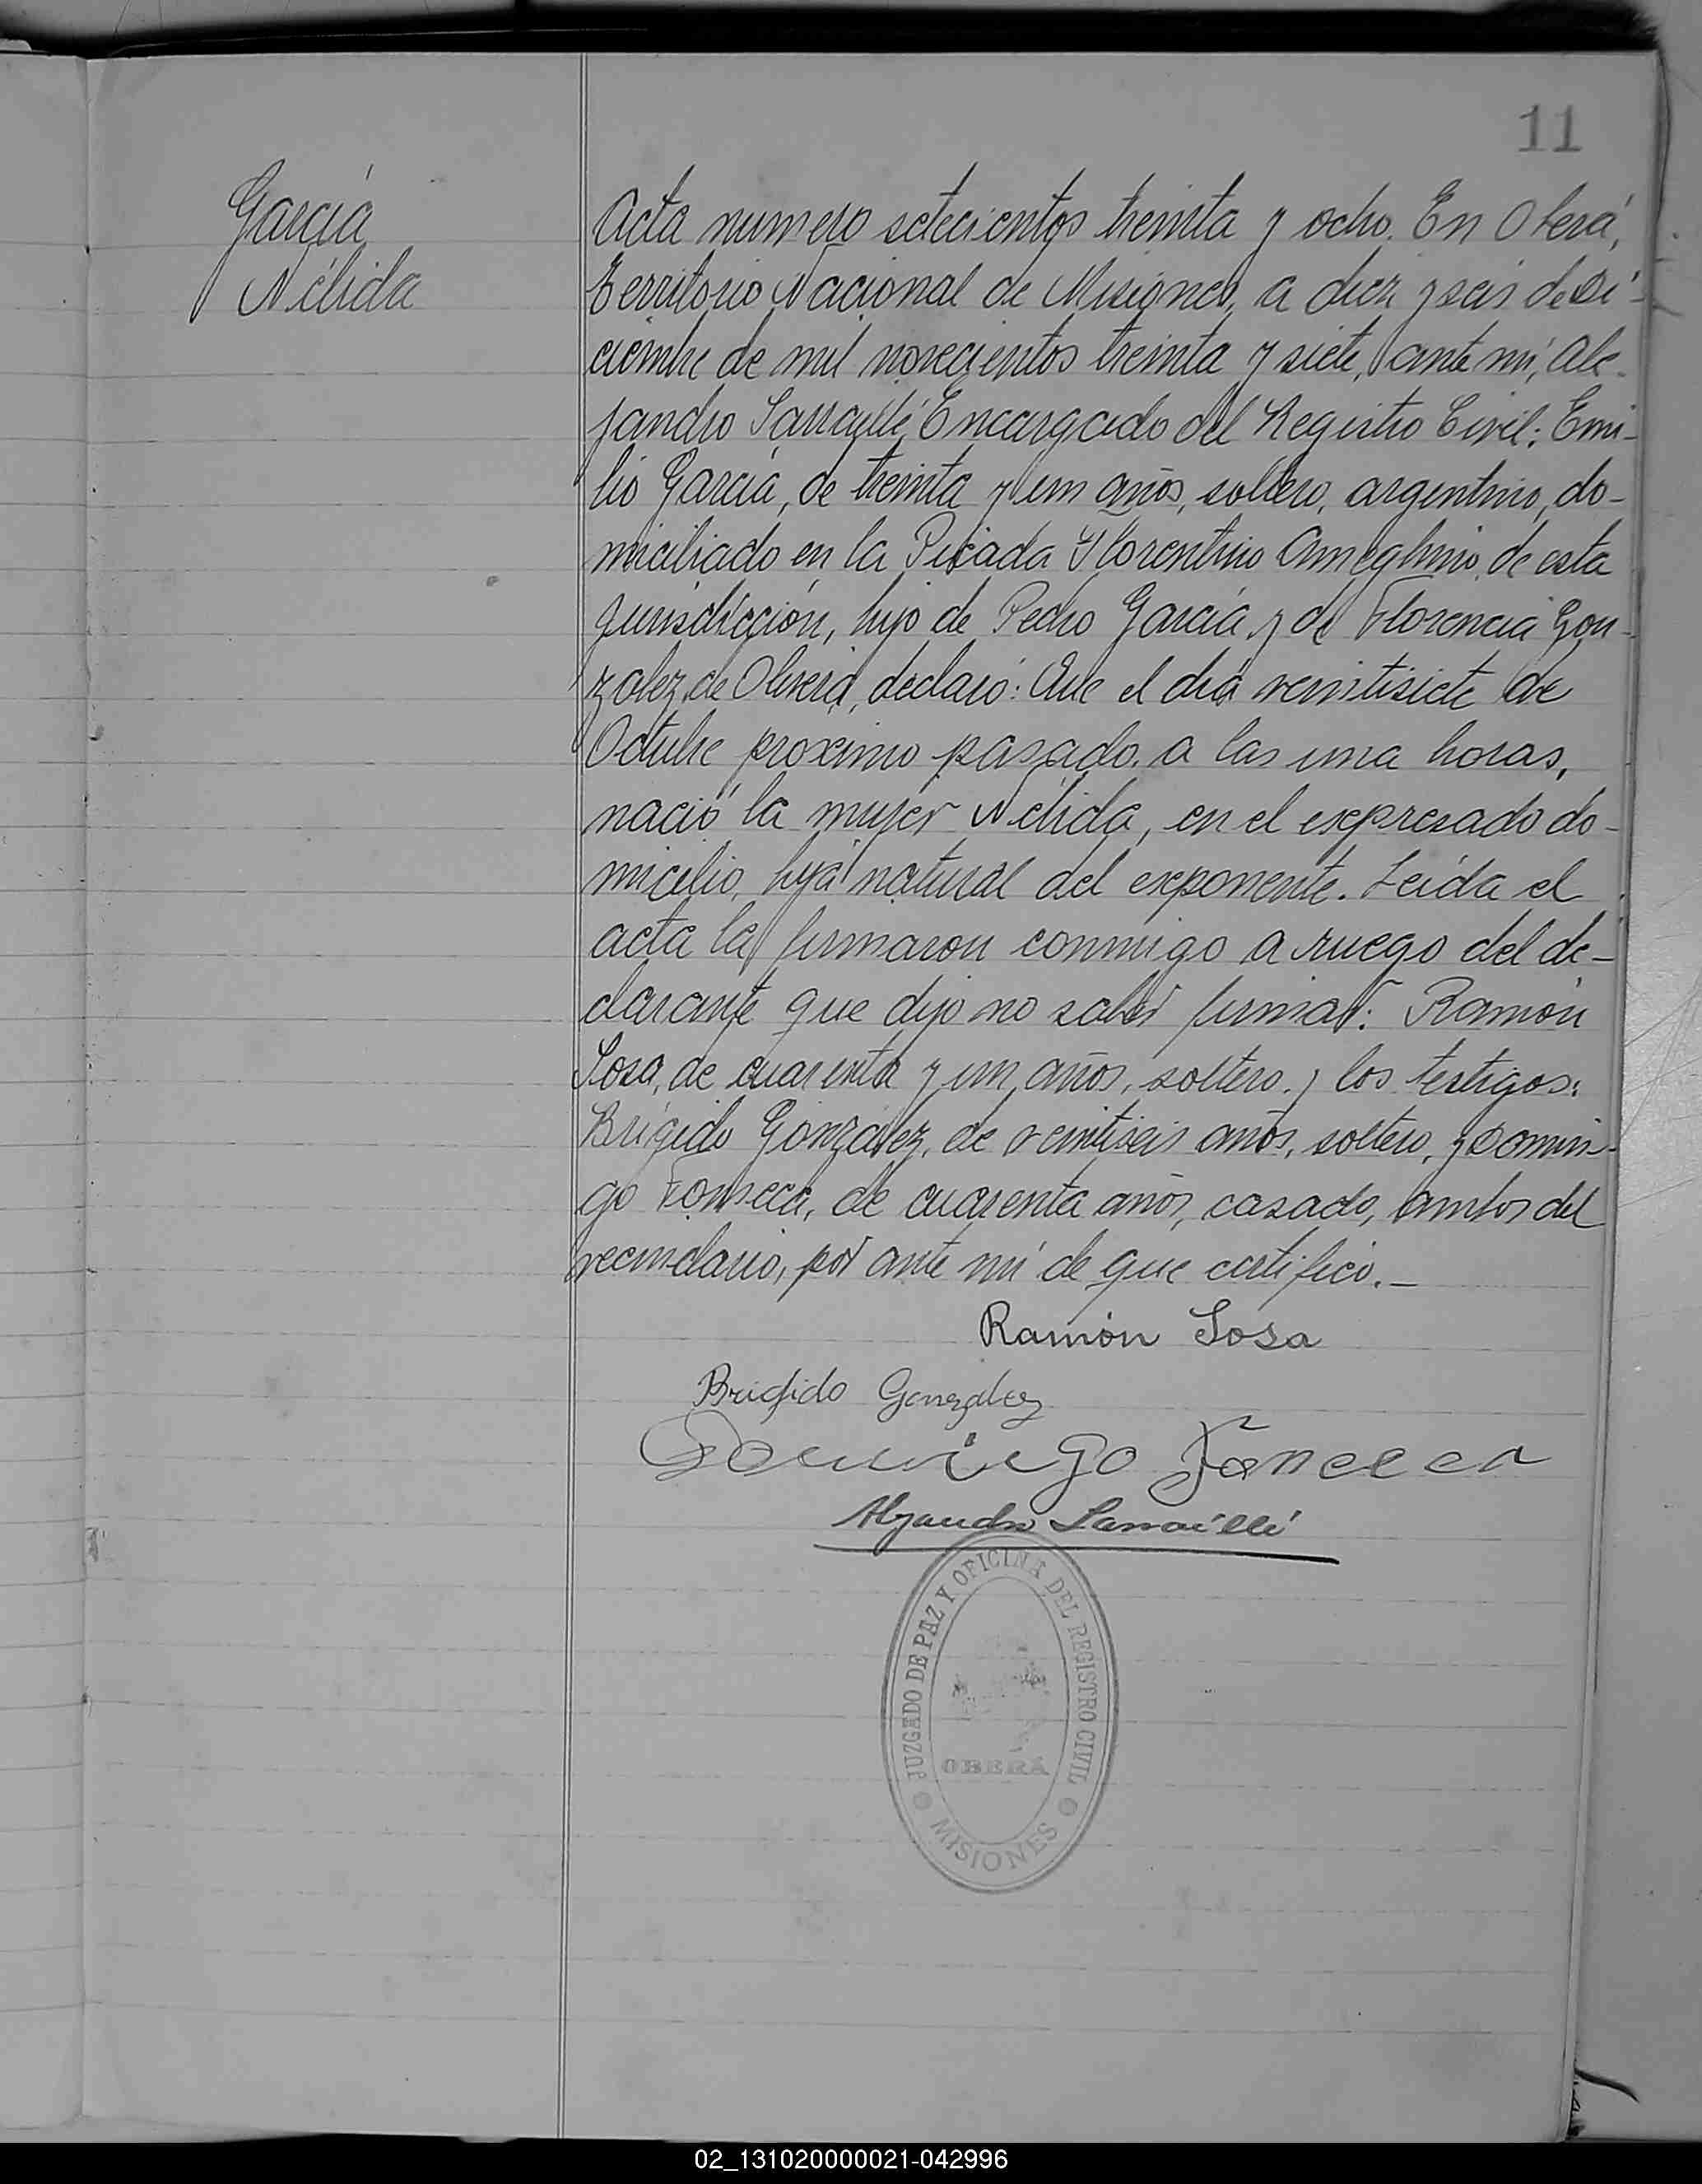 11
García
Nélida
Acta numero setecientos treinta y ocho. En Oberá,
Territorio Nacional de Misiones, a diez y seis de Di-
ciembre de mil novecientos treinta y siete, ante mí, Ale-
jandro Sarraillé, Encargado del Registro Civil: Emi-
lio García, de treinta y un años, soltero, argentino, do-
miciliado en la Picada Florentino Ameghino, de esta
jurisdicción, hijo de Pedro García y de Florencia Gon-
zalez de Olivera, declaró: Que el día veintisiete de
Octubre proximo pasado, a las una horas,
nació la mujer Nélida, en el expresado do-
micilio, hija natural del exponente. Leída el
acta la firmaron conmigo a ruego del de-
clarante que dijo no saber firmar: Ramón
Sosa, de cuarenta y un años, soltero, y los testigos:
Brígido González, de veintiseis años, soltero, y Domin-
go Fonseca, de cuarenta años, casado, ambos del
vecindario, por ante mí de que certifico.-
Ramón Sosa
Brigido Gonzalez
Domingo Fonceca
Alejandro Sarraillé
JUZGADO DE PAZ Y OFICINA DEL REGISTRO CIVIL
OBERÁ
MISIONES
02_131020000021-042996